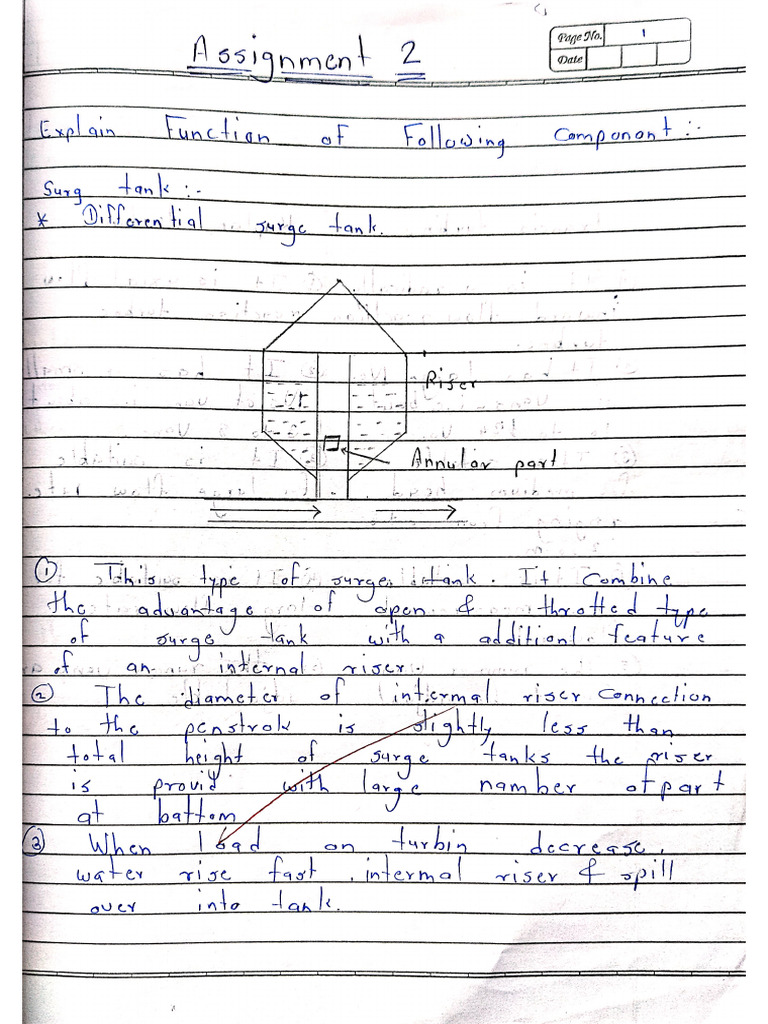 Page No. 1
Date
Assignment 2
Explain Function of Following Componant :-
Surg tank :-
* Differential surge tank.
Riser
Annular part
① This type of surge tank. It combine
the advantage of open & throtted type
of surge tank with a additionl feature
of an internal riser.
② The diameter of intermal riser connection
to the penstrok is slightly less than
total height of surge tanks the riser
is provid with large namber of part
at battom
③ When load on turbin decrease,
water rise fast intermal riser & spill
over into tank.